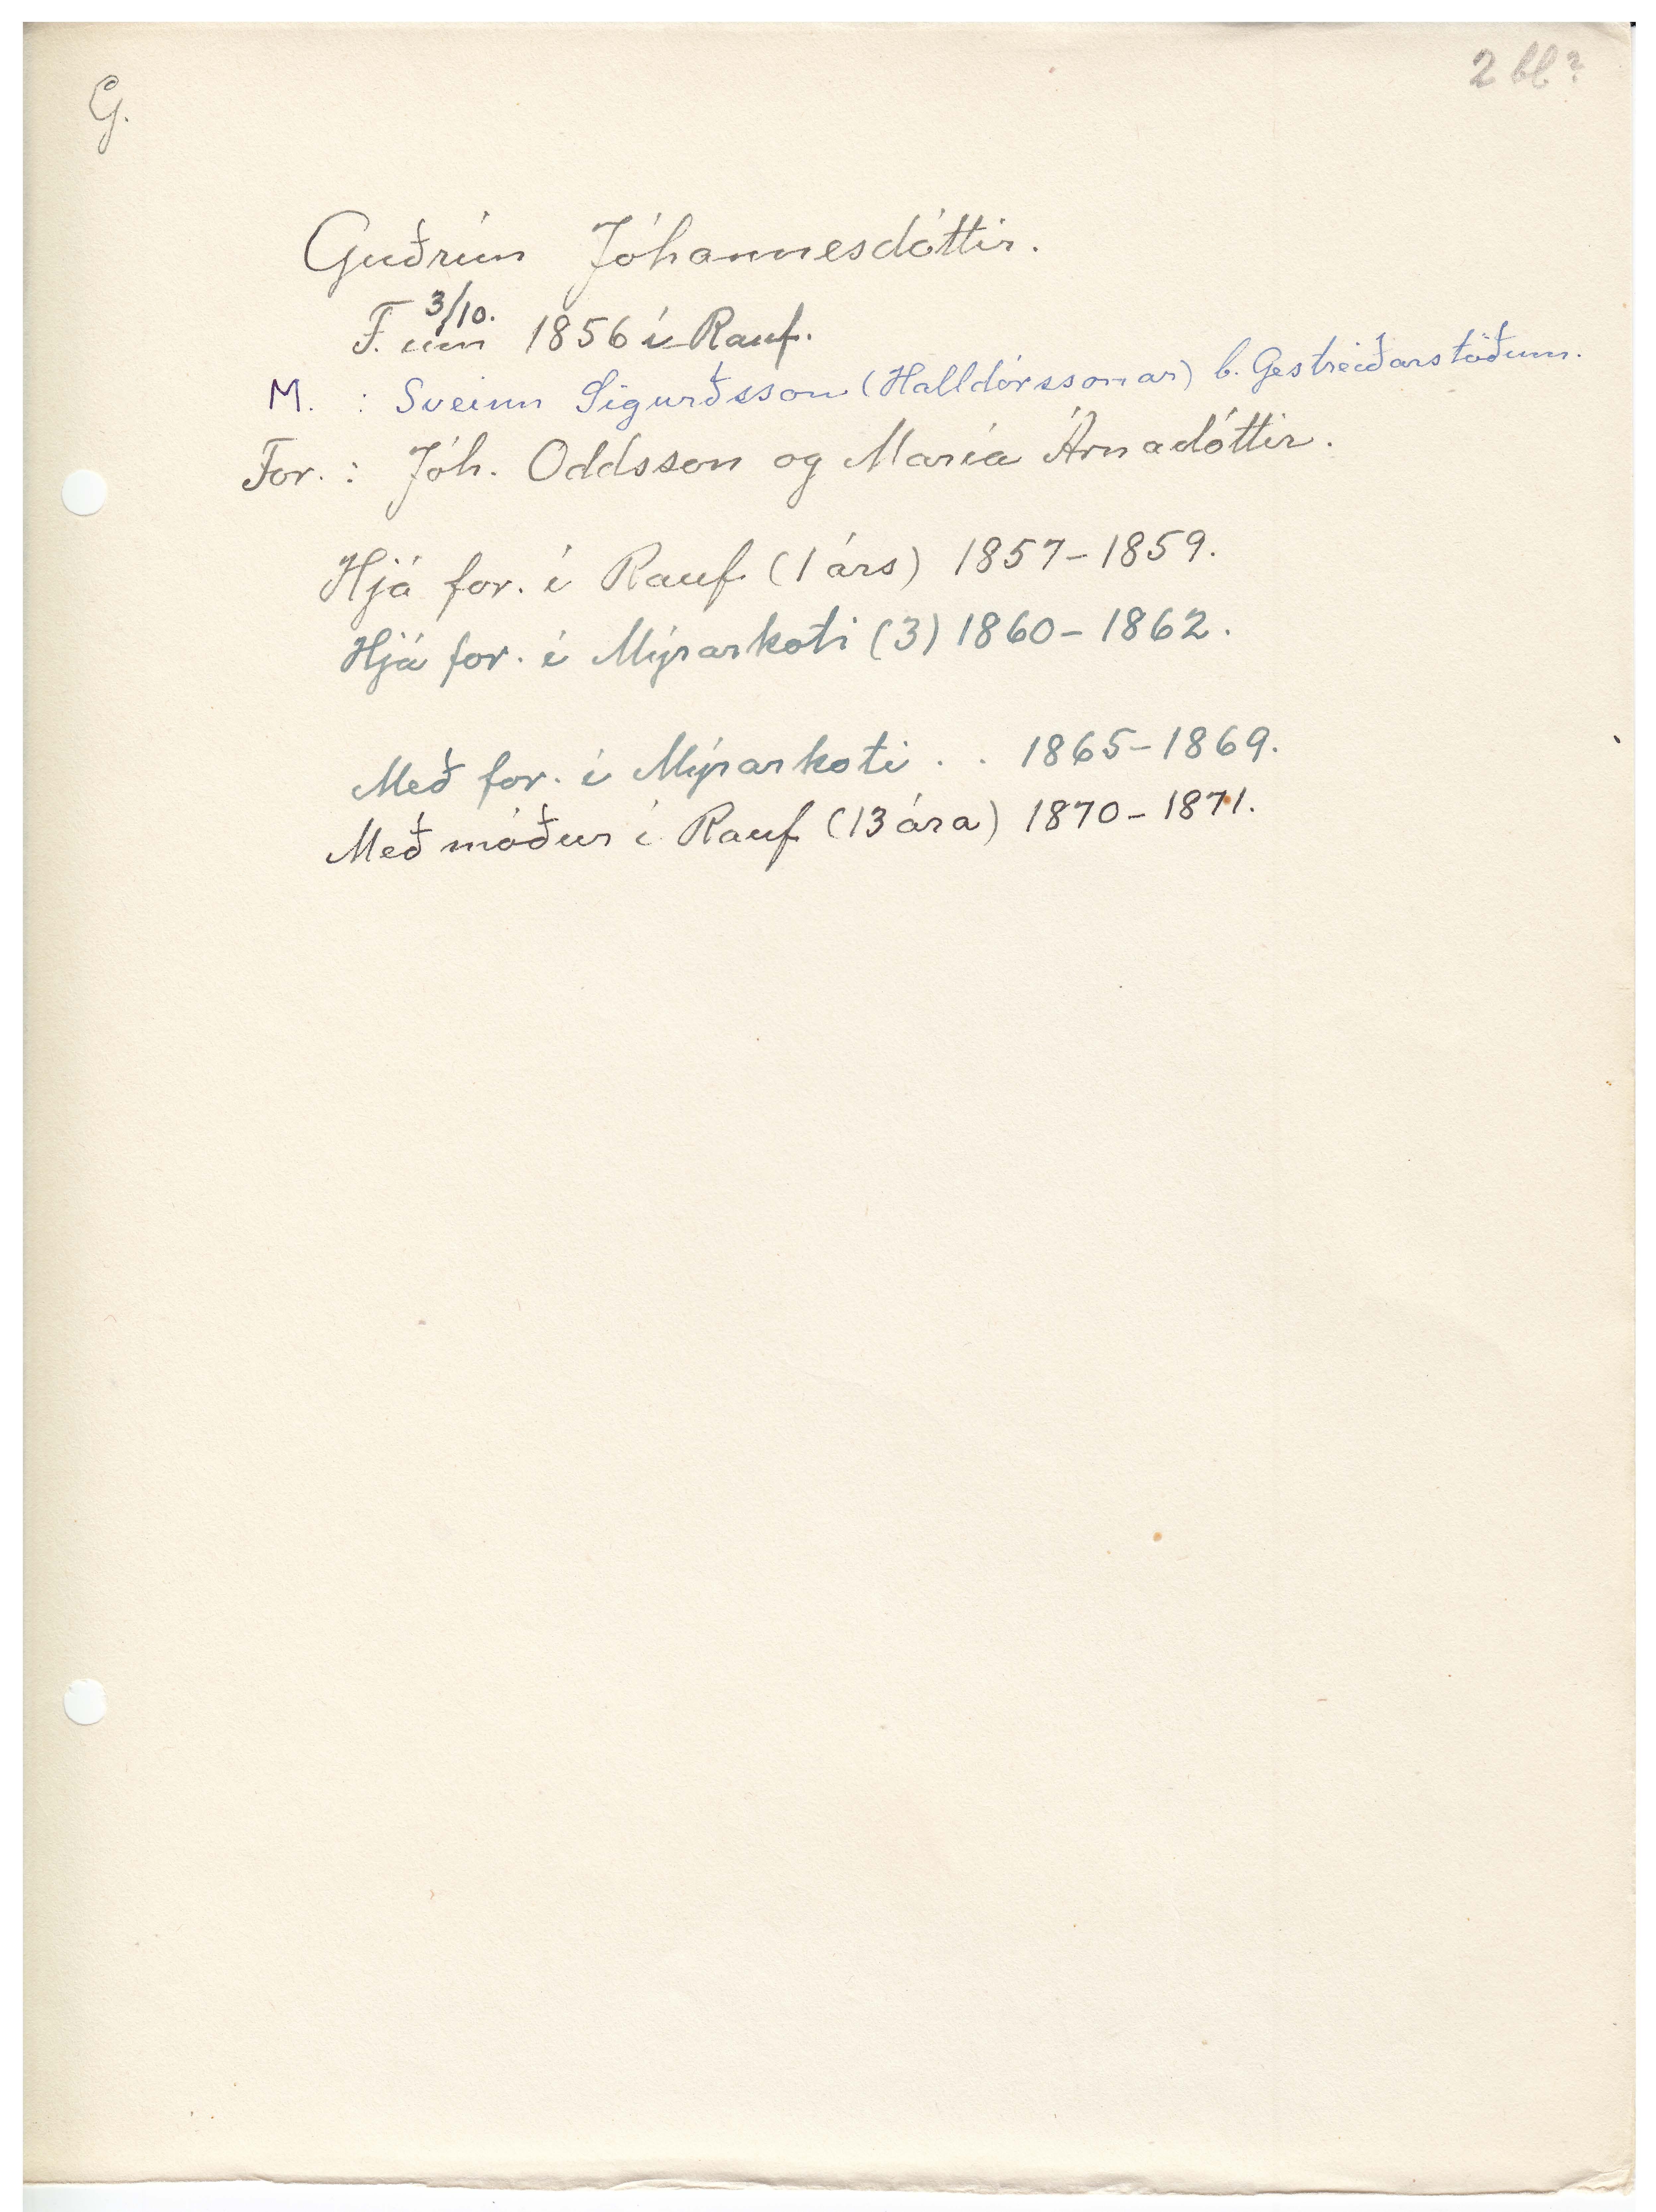 G.
2 bl?
Guðrún Jóhannesdóttir.
3/10.
F. um 1856 í Rauf.
M. : Sveinn Sigurðsson (Halldórssonar) b. Gestreiðarstöðum.
For. : Jóh. Oddsson og María Árnadóttir.
Hjá for. í Rauf (1 árs) 1857-1859.
Hjá for. í Mýrarkoti (3) 1860-1862.
Með for. í Mýrarkoti . . 1865-1869.
Með móður í Rauf (13 ára) 1870-1871.